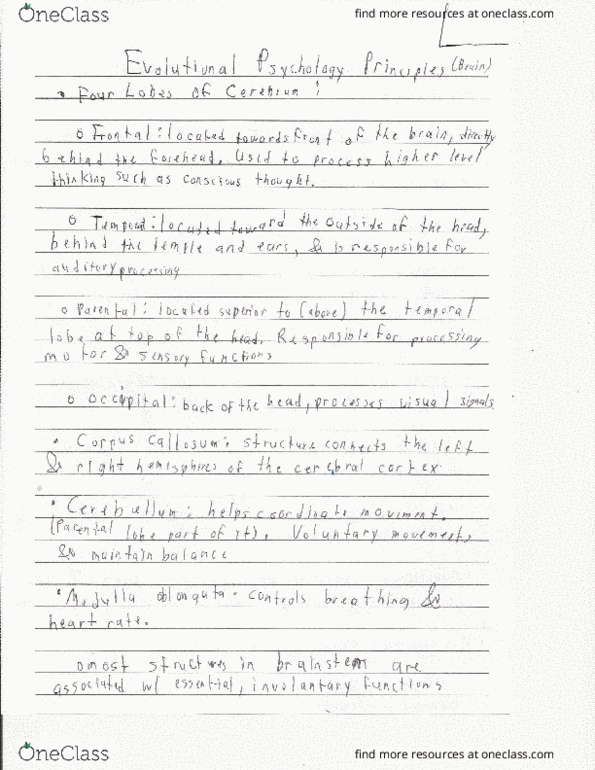 OneClass
find more resources at oneclass.com
Evolutional Psychology Principles (Brain)
• Four Lobes of Cerebrum:
o Frontal: located towards front of the brain, directly
behind the forehead. Used to process higher level
thinking such as conscious thought.
o Temporal: located toward the outside of the head,
behind the temple and ears, & is responsible for
auditory processing
o Parental: located superior to (above) the temporal
lobe at top of the head. Responsible for processing
motor & sensory functions
o Occipital: back of the head, processes visual signals
• Corpus Callosum: structure connects the left
& right hemisphires of the cerebral cortex
• Cerebellum: helps coordinate moviment.
(Parental lobe part of it). Voluntary movements,
& maintain balance
• Medulla oblongata: controls breathing &
heart rate.
o most structures in brainstem are
associated w/ essential, involuntary functions
OneClass
find more resources at oneclass.com